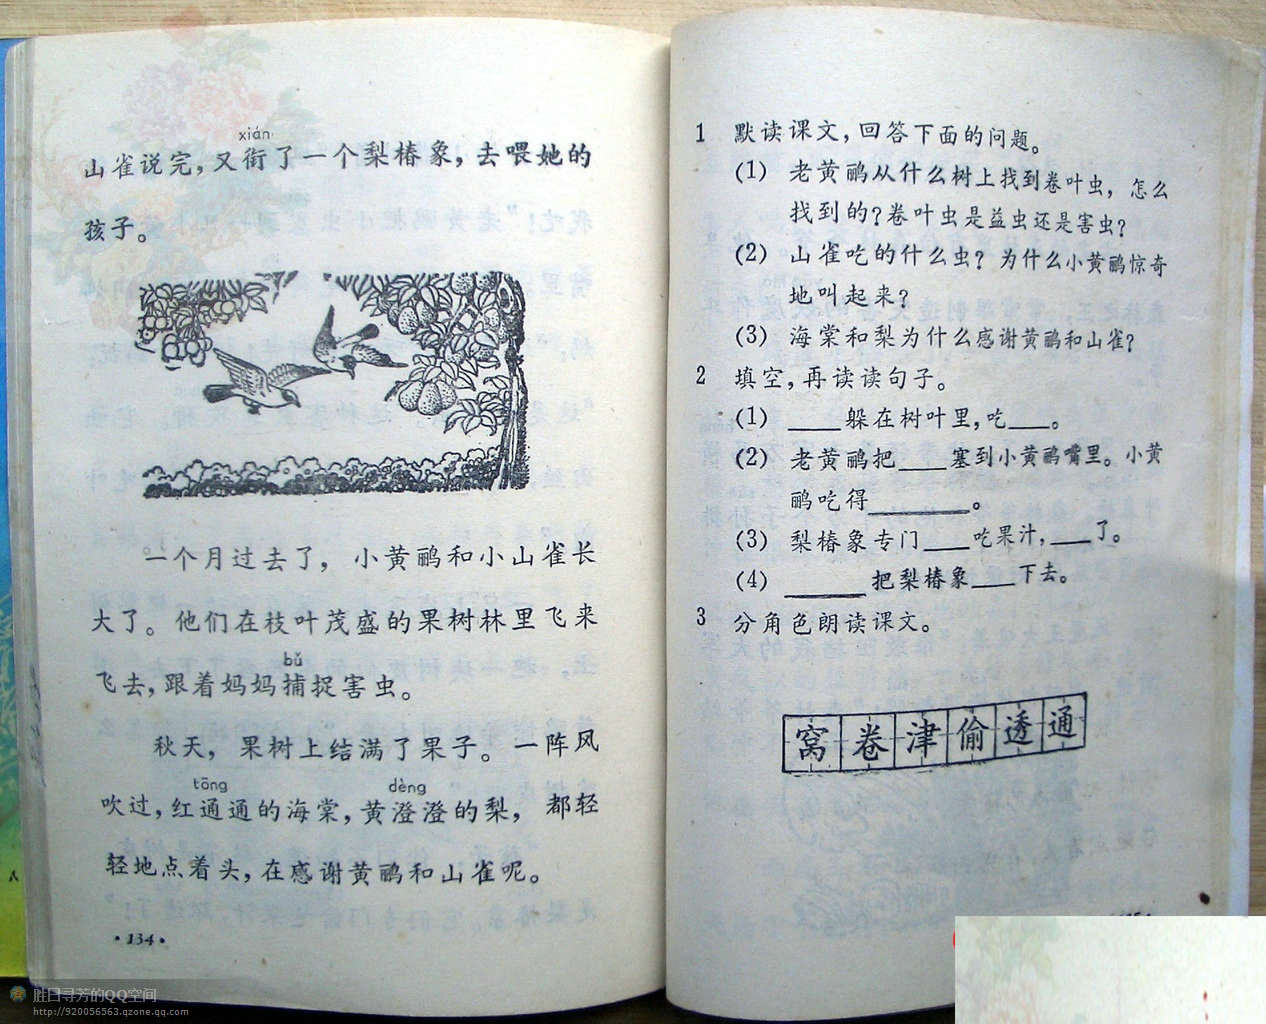 xián
山雀说完，又衔了一个梨椿象，去喂她的
孩子。
一个月过去了，小黄鹂和小山雀长
大了。他们在枝叶茂盛的果树林里飞来
bǔ
飞去，跟着妈妈捕捉害虫。
秋天，果树上结满了果子。一阵风
tōng dèng
吹过，红通通的海棠，黄澄澄的梨，都轻
轻地点着头，在感谢黄鹂和山雀呢。
·134·
1 默读课文，回答下面的问题。
(1) 老黄鹂从什么树上找到卷叶虫，怎么
找到的？卷叶虫是益虫还是害虫？
(2) 山雀吃的什么虫？为什么小黄鹂惊奇
地叫起来？
(3) 海棠和梨为什么感谢黄鹂和山雀？
2 填空，再读读句子。
(1) ____躲在树叶里，吃___。
(2) 老黄鹂把____塞到小黄鹂嘴里。小黄
鹂吃得________。
(3) 梨椿象专门____吃果汁，___了。
(4) ______把梨椿象____下去。
3 分角色朗读课文。
窝卷津偷透通
胜日寻芳的QQ空间
http://920056563.qzone.qq.com